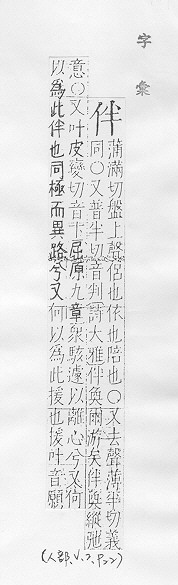 字彙
伴
蒲滿切盤上聲侶也依也陪也○又去聲薄半切義
同○又普半切音判詩大雅伴奐爾游矣伴奐縱弛
意○又叶皮變切音卞屈原九章衆駭遽以離心兮又何
以為此伴也同極而異路兮又何以為此援也援叶音願
(人部、V、2、P22)